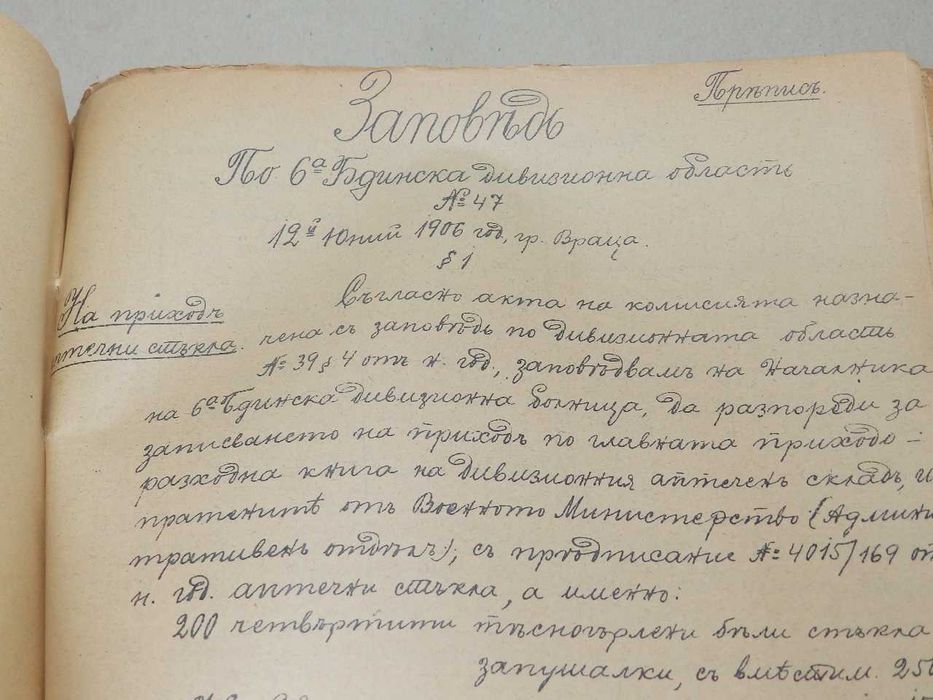 Прѣписъ.
Заповѣдь
По 6ª Бдинска дивизионна область
№ 47
12й Юний 1906 год, гр. Враца.
§ 1
На приходъ
аптечни стъкла.
Съгласно акта на комисията назна-
чена съ заповѣдь по дивизионната область
№ 39 § 4 отъ н. год., заповѣдвамъ на Началника
на 6ª Бдинска дивизионна болница, да разпореди за
записването на приходъ по главната приходо-
разходна книга на дивизионния аптеченъ складъ, и
пратенитѣ отъ Военното Министерство (Админи
тративенъ отдѣлъ), съ прѣдписание № 4015/169 от
н. год. аптечни стъкла, а именно:
200 четвъртити тѣсногърлени бѣли стъкла
запушалки, съ вмѣстим. 250